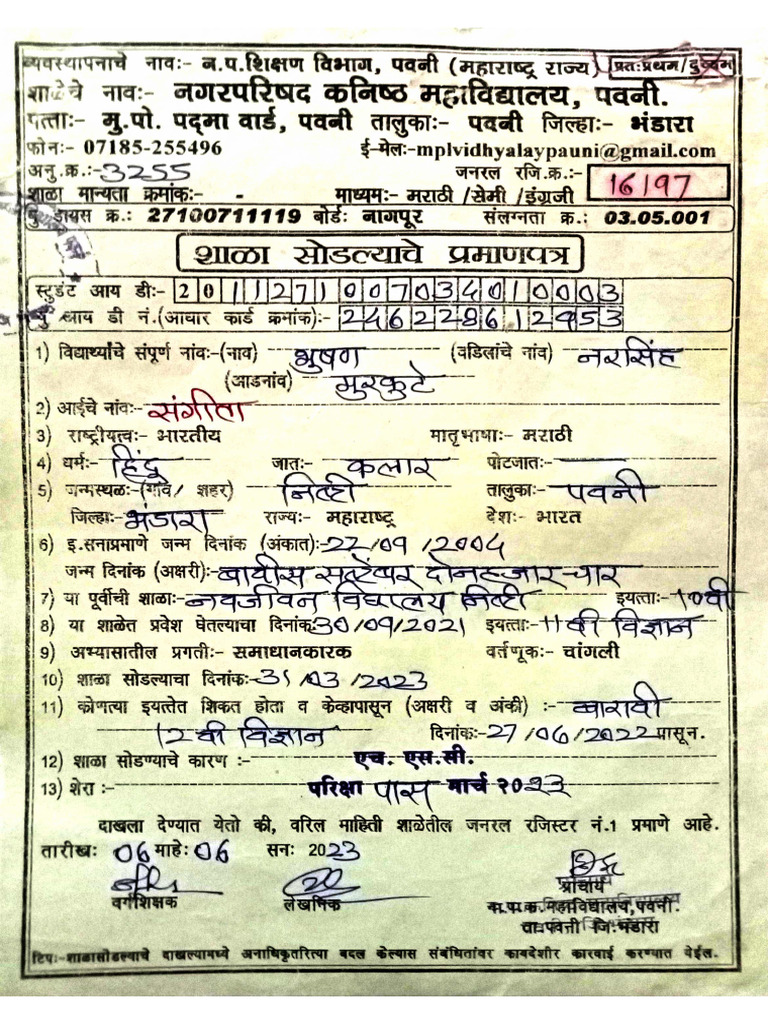 व्यवस्थापनाचे नावः- न.प.शिक्षण विभाग, पवनी (महाराष्ट्र राज्य) प्रतःप्रथम/दुय्यम
शाळेचे नावः- नगरपरिषद कनिष्ठ महाविद्यालय, पवनी.
पत्ताः- मु.पो. पद्मा वार्ड, पवनी तालुकाः- पवनी जिल्हाः- भंडारा
फोनः- 07185-255496 ई-मेलः-mplvidhyalaypauni@gmail.com
अनु.क्र.:-3255 जनरल रजि.क्र.:- 16197
शाळा मान्यता क्रमांकः- - माध्यमः- मराठी /सेमी /इंग्रजी
यु डायस क्र.: 27100711119 बोर्डः नागपूर संलग्नता क्र.: 03.05.001
शाळा सोडल्याचे प्रमाणपत्र
स्टुडंट आय डीः- 2011271007034010003
यु आय डी नं.(आधार कार्ड क्रमांक):- 246228612953
1) विद्यार्थ्यांचे संपूर्ण नांवः-(नाव) भुषण (वडिलांचे नांव) नरसिंह
(आडनांव) मुरकुटे
2) आईचे नांवः- संगीता
3) राष्ट्रीयत्वः- भारतीय मातृभाषाः- मराठी
4) धर्मः- हिंदु जातः- कलार पोटजातः-
5) जन्मस्थळः-(गांव/ शहर) निष्टी तालुकाः- पवनी
जिल्हाः- भंडारा राज्यः- महाराष्ट्र देशः- भारत
6) इ.सनाप्रमाणे जन्म दिनांक (अंकात):-22/09/2004
जन्म दिनांक (अक्षरी):- बावीस सप्टेंबर दोनहजार चार
7) या पूर्वीची शाळाः- नवजीवन विद्यालय निष्टी इयत्ताः- 10वी
8) या शाळेत प्रवेश घेतल्याचा दिनांकः30/09/2021 इयत्ताः- 11वी विज्ञान
9) अभ्यासातील प्रगतीः- समाधानकारक वर्तणूकः- चांगली
10) शाळा सोडल्याचा दिनांकः- 31/03/2023
11) कोणत्या इयत्तेत शिकत होता व केव्हापासून (अक्षरी व अंकी) :- बारावी
12वी विज्ञान दिनांकः-27/06/2022पासून.
12) शाळा सोडण्याचे कारण :- एच. एस.सी.
13) शेरा :- परिक्षा पास मार्च २०23
दाखला देण्यात येतो की, वरिल माहिती शाळेतील जनरल रजिस्टर नं.1 प्रमाणे आहे.
तारीखः 06 माहेः 06 सनः 2023
वर्गशिक्षक लेखनिक प्राचार्य
न.प.क.महाविद्यालय,पवनी.
ता.पवनी जि.भंडारा
टिपः-शाळासोडल्याचे दाखल्यामध्ये अनाधिकृतरित्या बदल केल्यास संबंधितांवर कायदेशीर कारवाई करण्यात येईल.